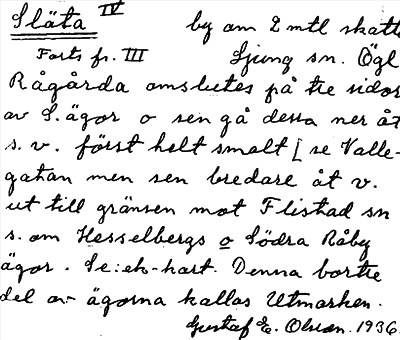 Släta IV by om 2 mtl skatte
Forts fr. III Ljung sn. Ögl
Rågårda omslutes på tre sidor
av S. ägor o sen gå dessa ner åt
s. v. först helt smalt [ se Valle-
gatan men sen bredare åt v.
ut till gränsen mot Flistad sn
s. om Hesselbergs o Södra Råby
ägor. Se: ek-kart. Denna bortre
del av ägorna kallas Utmarken.
Gustaf E. Olsson. 1936.